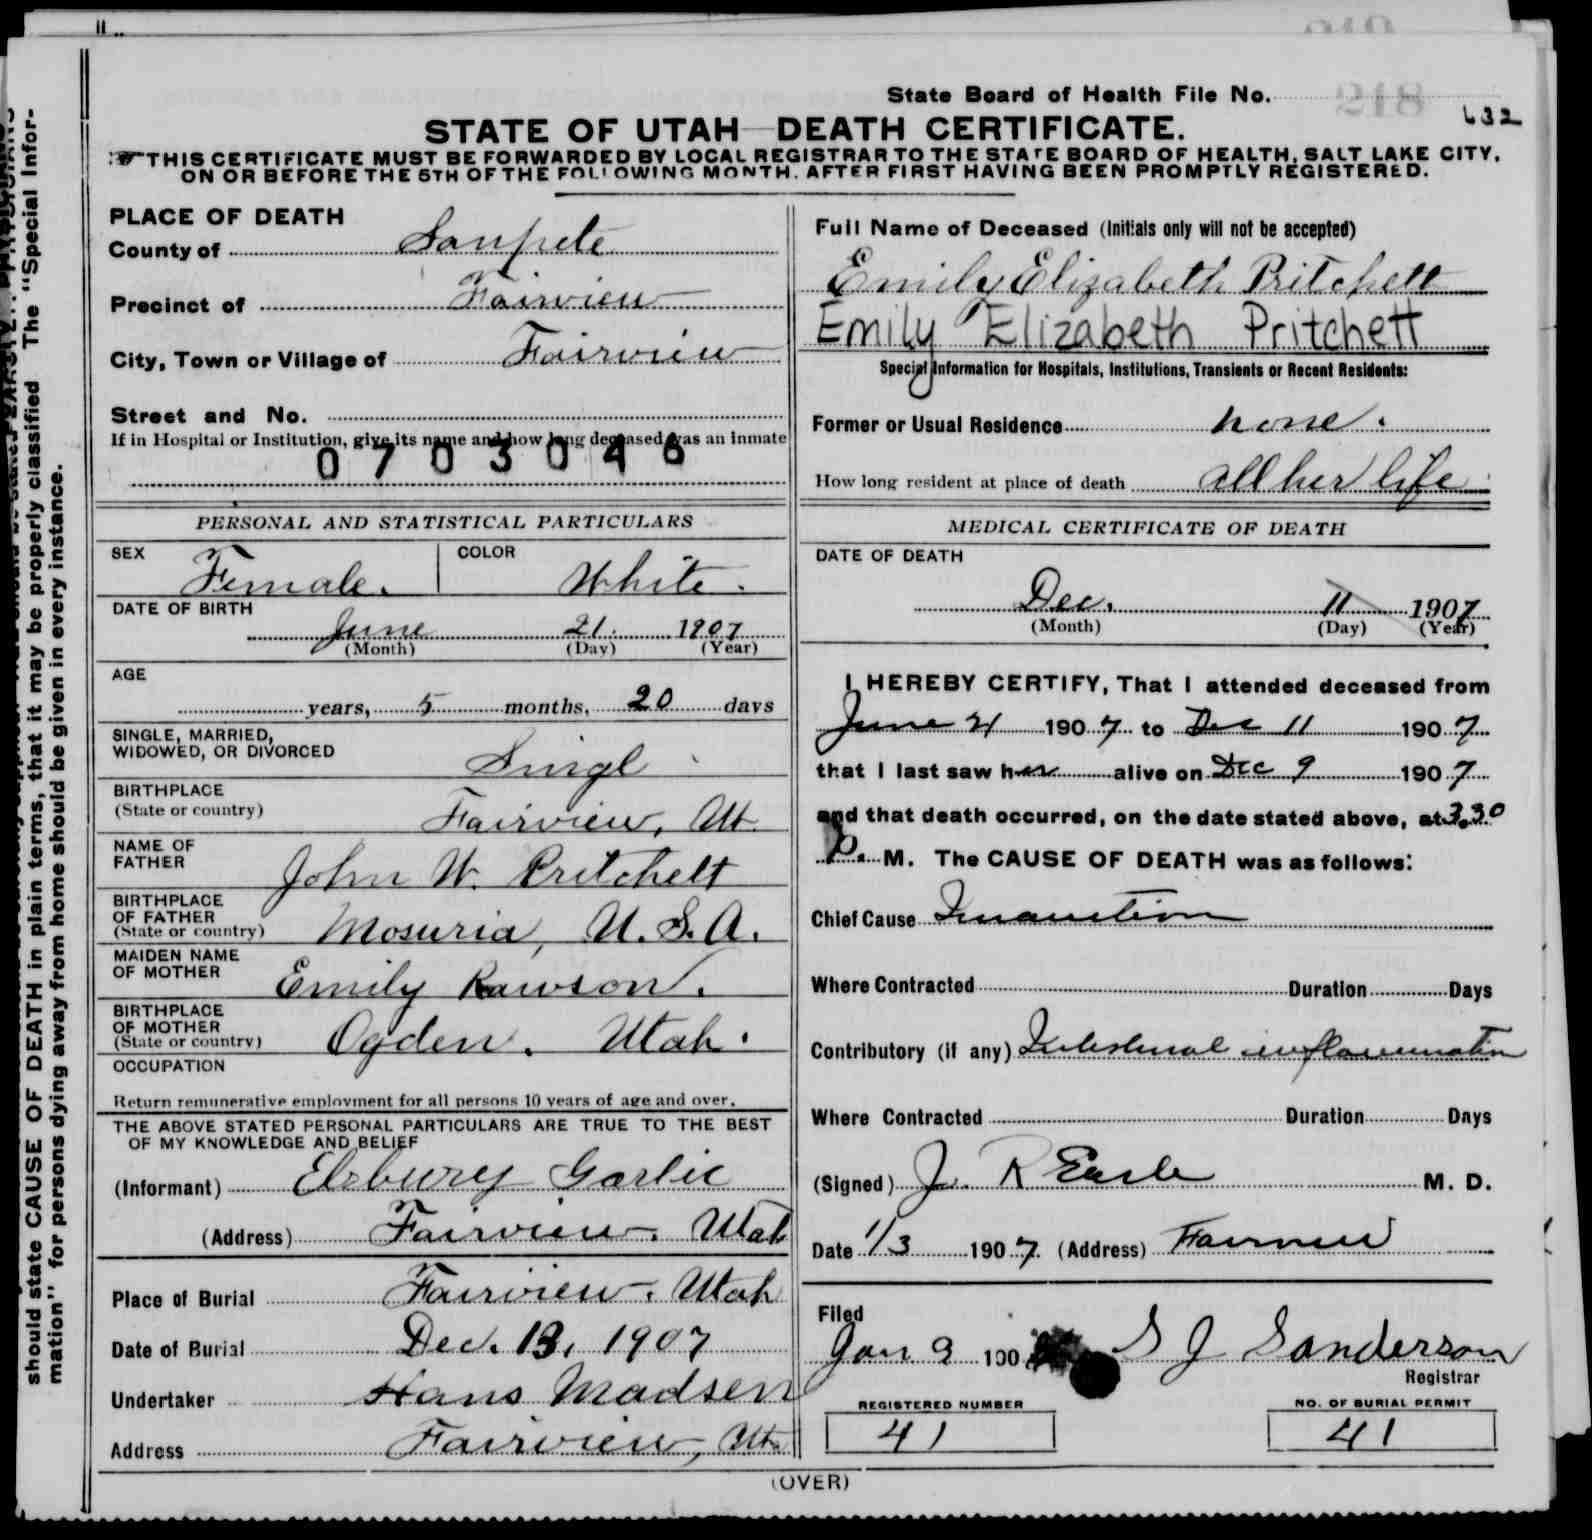 State Board of Health File No. 812
632
STATE OF UTAH DEATH CERTIFICATE.
THIS CERTIFICATE MUST BE FORWARDED BY LOCAL REGISTRAR TO THE STATE BOARD OF HEALTH, SALT LAKE CITY,
ON OR BEFORE THE 5TH OF THE FOLLOWING MONTH, AFTER FIRST HAVING BEEN PROMPTLY REGISTERED.
should state CAUSE OF DEATH in plain terms, that it may be properly classified The "Special Infor-
mation" for persons dying away from home should be given in every instance.
PLACE OF DEATH
County of Sanpete
Precinct of Fairview
City, Town or Village of Fairview
Street and No.
If in Hospital or Institution, give its name and how long deceased was an inmate
0703046
PERSONAL AND STATISTICAL PARTICULARS
SEX Female. COLOR White.
DATE OF BIRTH
June 21. 1907
(Month) (Day) (Year)
AGE
years, 5 months, 20 days
SINGLE, MARRIED,
WIDOWED, OR DIVORCED Singl
BIRTHPLACE
(State or country) Fairview, Ut.
NAME OF
FATHER John W. Pritchett
BIRTHPLACE
OF FATHER
(State or country) Mosuria, U.S.A.
MAIDEN NAME
OF MOTHER Emily Rawson.
BIRTHPLACE
OF MOTHER
(State or country) Ogden. Utah.
OCCUPATION
Return remunerative employment for all persons 10 years of age and over.
THE ABOVE STATED PERSONAL PARTICULARS ARE TRUE TO THE BEST
OF MY KNOWLEDGE AND BELIEF
(Informant) Elsbury Garlic
(Address) Fairview. Utah
Place of Burial Fairview. Utah
Date of Burial Dec. 13, 1907
Undertaker Hans Madsen
Address Fairview, Ut.
Full Name of Deceased (Initials only will not be accepted)
Emily Elizabeth Pritchett
Emily Elizabeth Pritchett
Special Information for Hospitals, Institutions, Transients or Recent Residents:
Former or Usual Residence none.
How long resident at place of death all her life
MEDICAL CERTIFICATE OF DEATH
DATE OF DEATH
Dec. 11 1907
(Month) (Day) (Year)
I HEREBY CERTIFY, That I attended deceased from
June 21 1907 to Dec 11 1907
that I last saw her alive on Dec 9 1907
and that death occurred, on the date stated above, at 3.30
P. M. The CAUSE OF DEATH was as follows:
Chief Cause Inanition
Where Contracted Duration Days
Contributory (if any) Intestinal inflammation
Where Contracted Duration Days
(Signed) J. R Earle M. D.
Date 1/3 1907. (Address) Fairview
Filed
Jan 9 190 S J Sanderson
Registrar
REGISTERED NUMBER
41
NO. OF BURIAL PERMIT
41
(OVER)